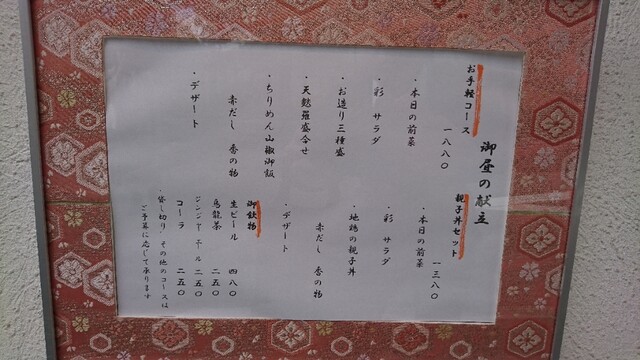 御昼の献立
お手軽コース
一八八〇
・本日の前菜
・彩 サラダ
・お造り三種盛
・天麩羅盛合せ
・ちりめん山椒御飯
赤だし 香の物
・デザート
親子丼セット
一三八〇
・本日の前菜
・彩 サラダ
・地鶏の親子丼
赤だし 香の物
・デザート
御飲物
生ビール 四八〇
烏龍茶 二五〇
ジンジャエール 二五〇
コーラ 二五〇
・貸し切り、その他のコースは
ご予算に応じて承ります